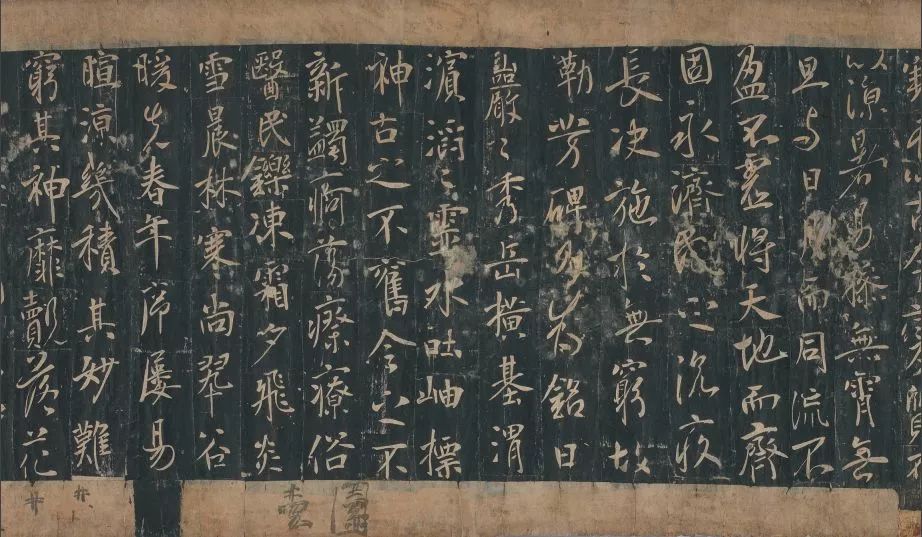 以涼暑易操無霄無
旦与日月而同流不
盈不虛将天地而齊
固永濟民之沉疾
長决施於無窮故
勒芳碑為銘曰
巖〻秀岳橫基渭
濱滔〻靈水吐岫標
神古之不舊今之不
新蠲痾蕩瘵療俗
醫民鑠凍霜夕飛炎
雪晨林寒尚翠谷
暖先春年序屢易
暄涼幾積其妙難
窮其神靡覿落花